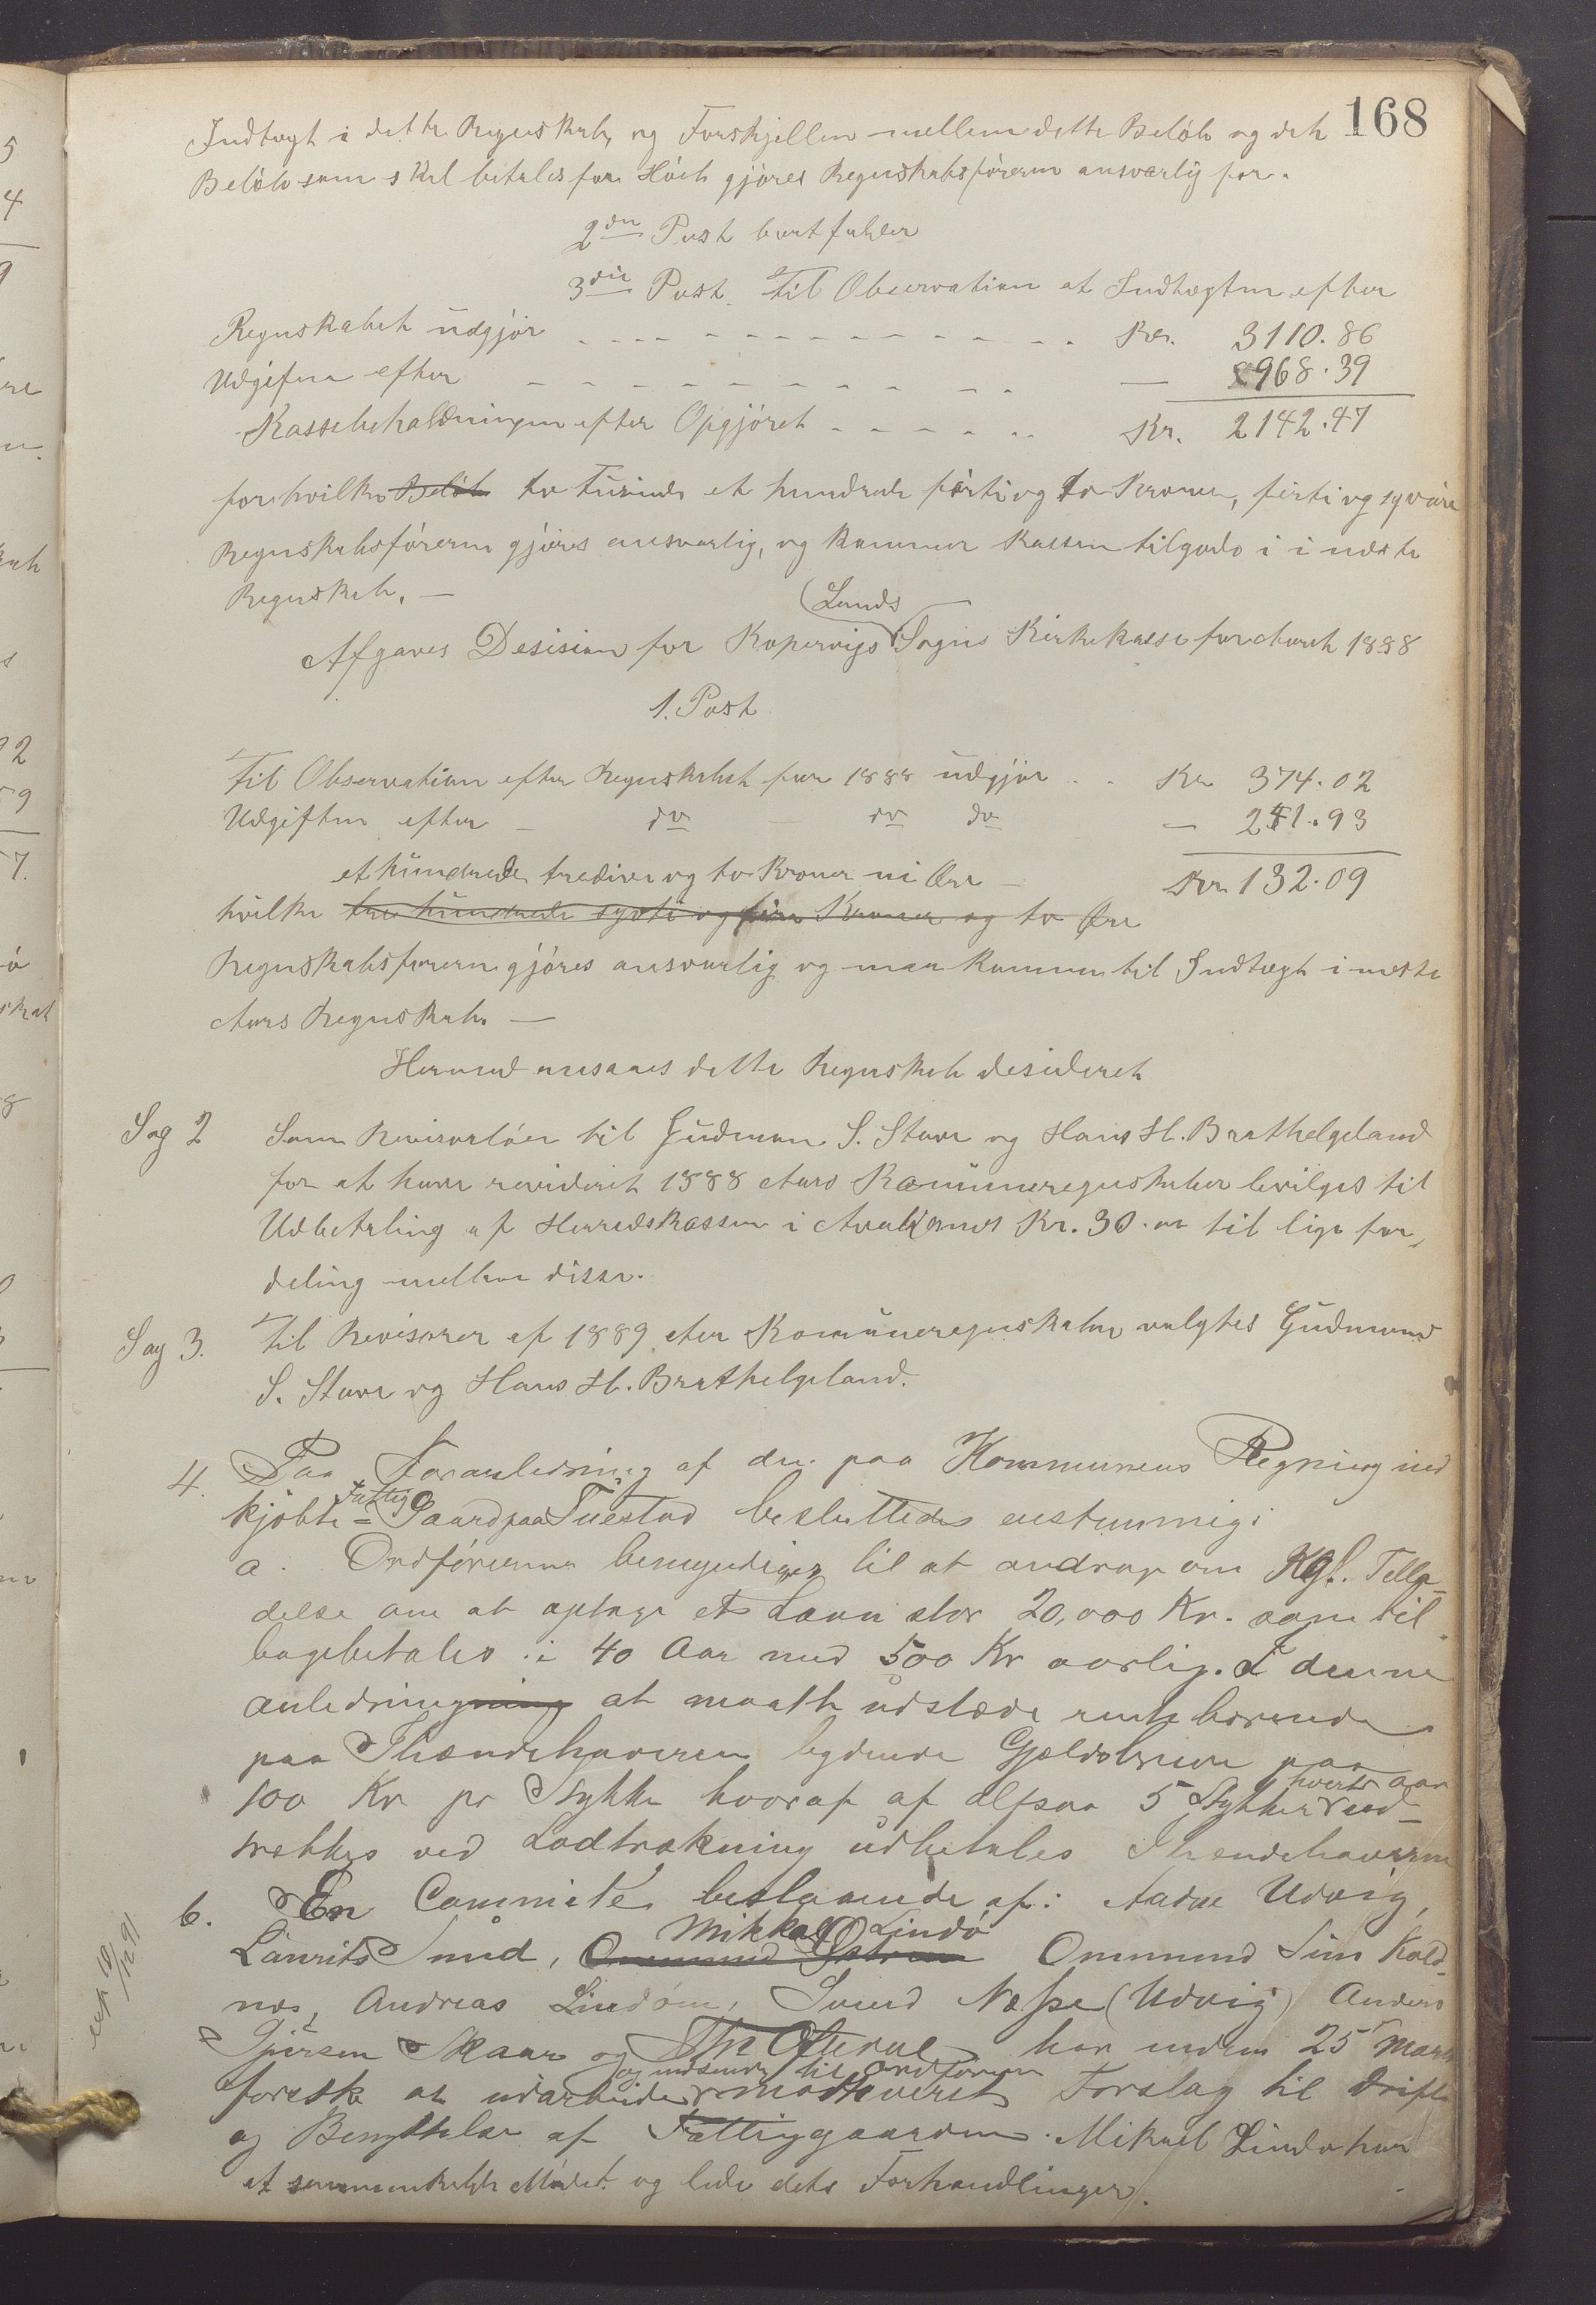 168
Indtægt i dette Regnskab, og Forskjellen mellem dette Beløb og det
Beløb som skal betales for Höet gjöres Regnskabsförern ansvarlig for.
2den Post bortfalder
3die Post. Til Observation at Indtægten efter
Regnskabet udgjör Kr. 3110.86
Udgiften efter — 968.39
Kassebeholdningen efter Opgjöret Kr. 2142.47
for hvilke Beløb to tusinde et hundrede förti og to Kroner, förti og syv öre
Regnskabsförern gjöres ansvarlig, og kommer Kassen tilgode i i næste
Regnskab. —
Lands
Afgaves Desision for Kopervigs Sogns Kirkekasse for Aaret 1888
1. Post
Til Observation efter Regnskabet for 1888 udgjør Kr 374.02
Udgiften efter do do do — 241.93
et hundrede tredive og to Kroner ni Øre — Kr. 132.09
hvilke tre hundrede sytti og fire Kroner og to Øre
Regnskabsførern gjöres ansvarlig og maa komme til Indtægt i næste
Aars Regnskab. —
Hermed ansaaes dette Regnskab desideret
Sag 2 Som Revisorlön til Gudmun S. Stave og Hans H. Brathelgeland
for at have revideret 1888 Aars Komuneregnskaber bevilges til
Udbetaling af Herredskassen i Avaldsnes Kr. 30.00 til lige for-
deling mellem disse.
Sag 3. Til Revisorer af 1889 Aars Komuneregnskaber valgtes Gudmund
S. Stave og Hans H. Brathelgeland.
4. Paa Foranledning af den paa Kommunens Regning ind
Fattig
kjöbte - Gaard paa Tuestad besluttedes enstemmig:
a. Ordförerne bemyndiges til at andrage om Kgl. Tilla-
delse om at optage et Laan stor 20,000 Kr. som til-
bagebetales i 40 Aar med 500 Kr aarlig. I denne
anledningning at maatte udstæde rentebærende
paa Ihændehaveren lydende Gjeldsbreve paa
hvert aar
100 Kr pr Stykke hvoraf af altsaa 5 Stykker ud-
trækkes ved Lodtrækning udbetales Ihændehaveren
b. En Commité bestaaende af: Aadne Udvig,
Mikkal Lindö
Laurits Smid, Ommund Ommund Sim Kold-
nes, Andreas Lindöen, Svend Næsse (Udvig) Anders
Sjursen Skaar og har inden 25 Marts
og indsende til ordföreren
foreste at udarbeide motiveret Forslag til Drift
og Benyttelse af Fattiggaarden. Mikael Lindø har
at sammenkalde Mödet og lede dets Forhandlinger.